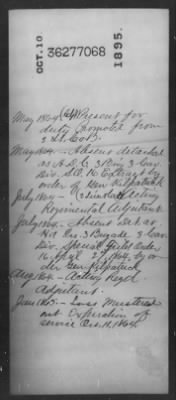 OCT. 10
36277068
1895.
May 1864 Present for
duty Promoted from
2 Lt. Co B.
May 1864 - Absent detached
as A.D.C. 3 Brig 3 Cav.
Div. S.O. 16 Extract by
order of Gen Kilpatrick
July 1864 - Acting
Regimental Adjutant
July 1864 - Absent Det as
3 Brigade 3 Cav.
Div. Special Field Order
16 2 1864. by or
der Gen Kilpatrick
Aug 1864 - Acting Regtl
Adjutant.
June 1865 - Loss Mustered
out Expiration of
service Oct. 11, 1864.